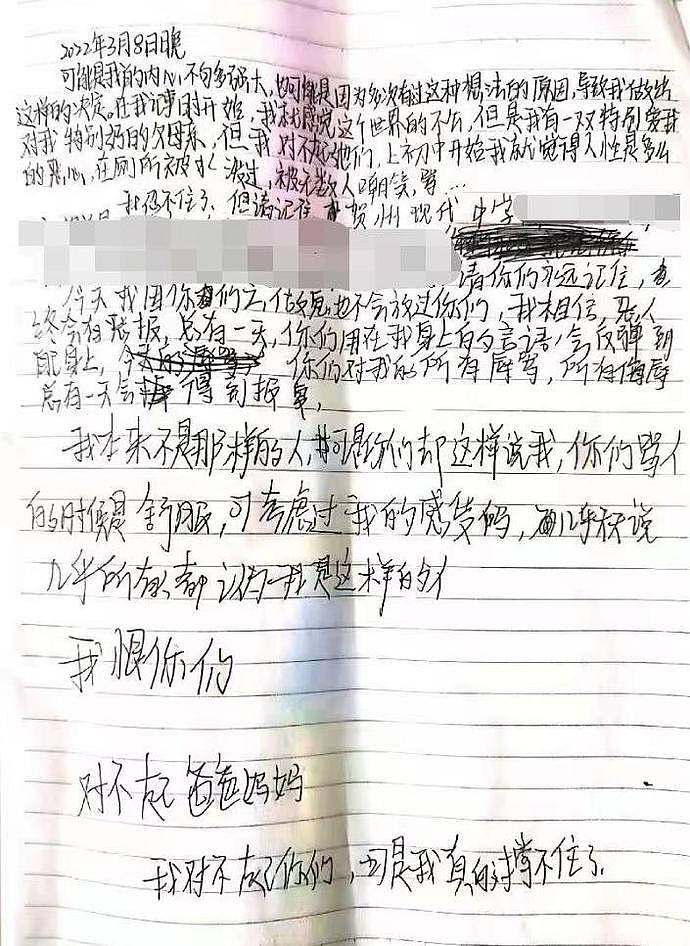 2022年3月8日晚
可能是我的内心不够多强大,也可能是因为多次有过这种想法的原因,导致我做出
这样的决定。在我记事时开始,我就感觉这个世界的不公,但是我有一双特别爱我
对我特别好的父母亲,但我对不起他们,上初中开始我就觉得人性是多么
的恶心,在厕所被水泼过,被无数人嘲笑,骂…
我忍不住了,但请记住 贺州现代中学
请你们永远记住,
今天我因你们去做鬼也不会放过你们,我相信,恶人
终会有恶报,总有一天,你们用在我身上的言语,会反弹到
自己身上, 你们对我的所有辱骂,所有侮辱
总有一天会得到报复,
我本来不是那样的人,可是你们却这样说我,你们骂人
的时候是舒服,可考虑过我的感受吗,
几乎所有都认为我是这样的人
我恨你们
对不起爸爸妈妈
我对不起你们,可是我真的撑不住了.